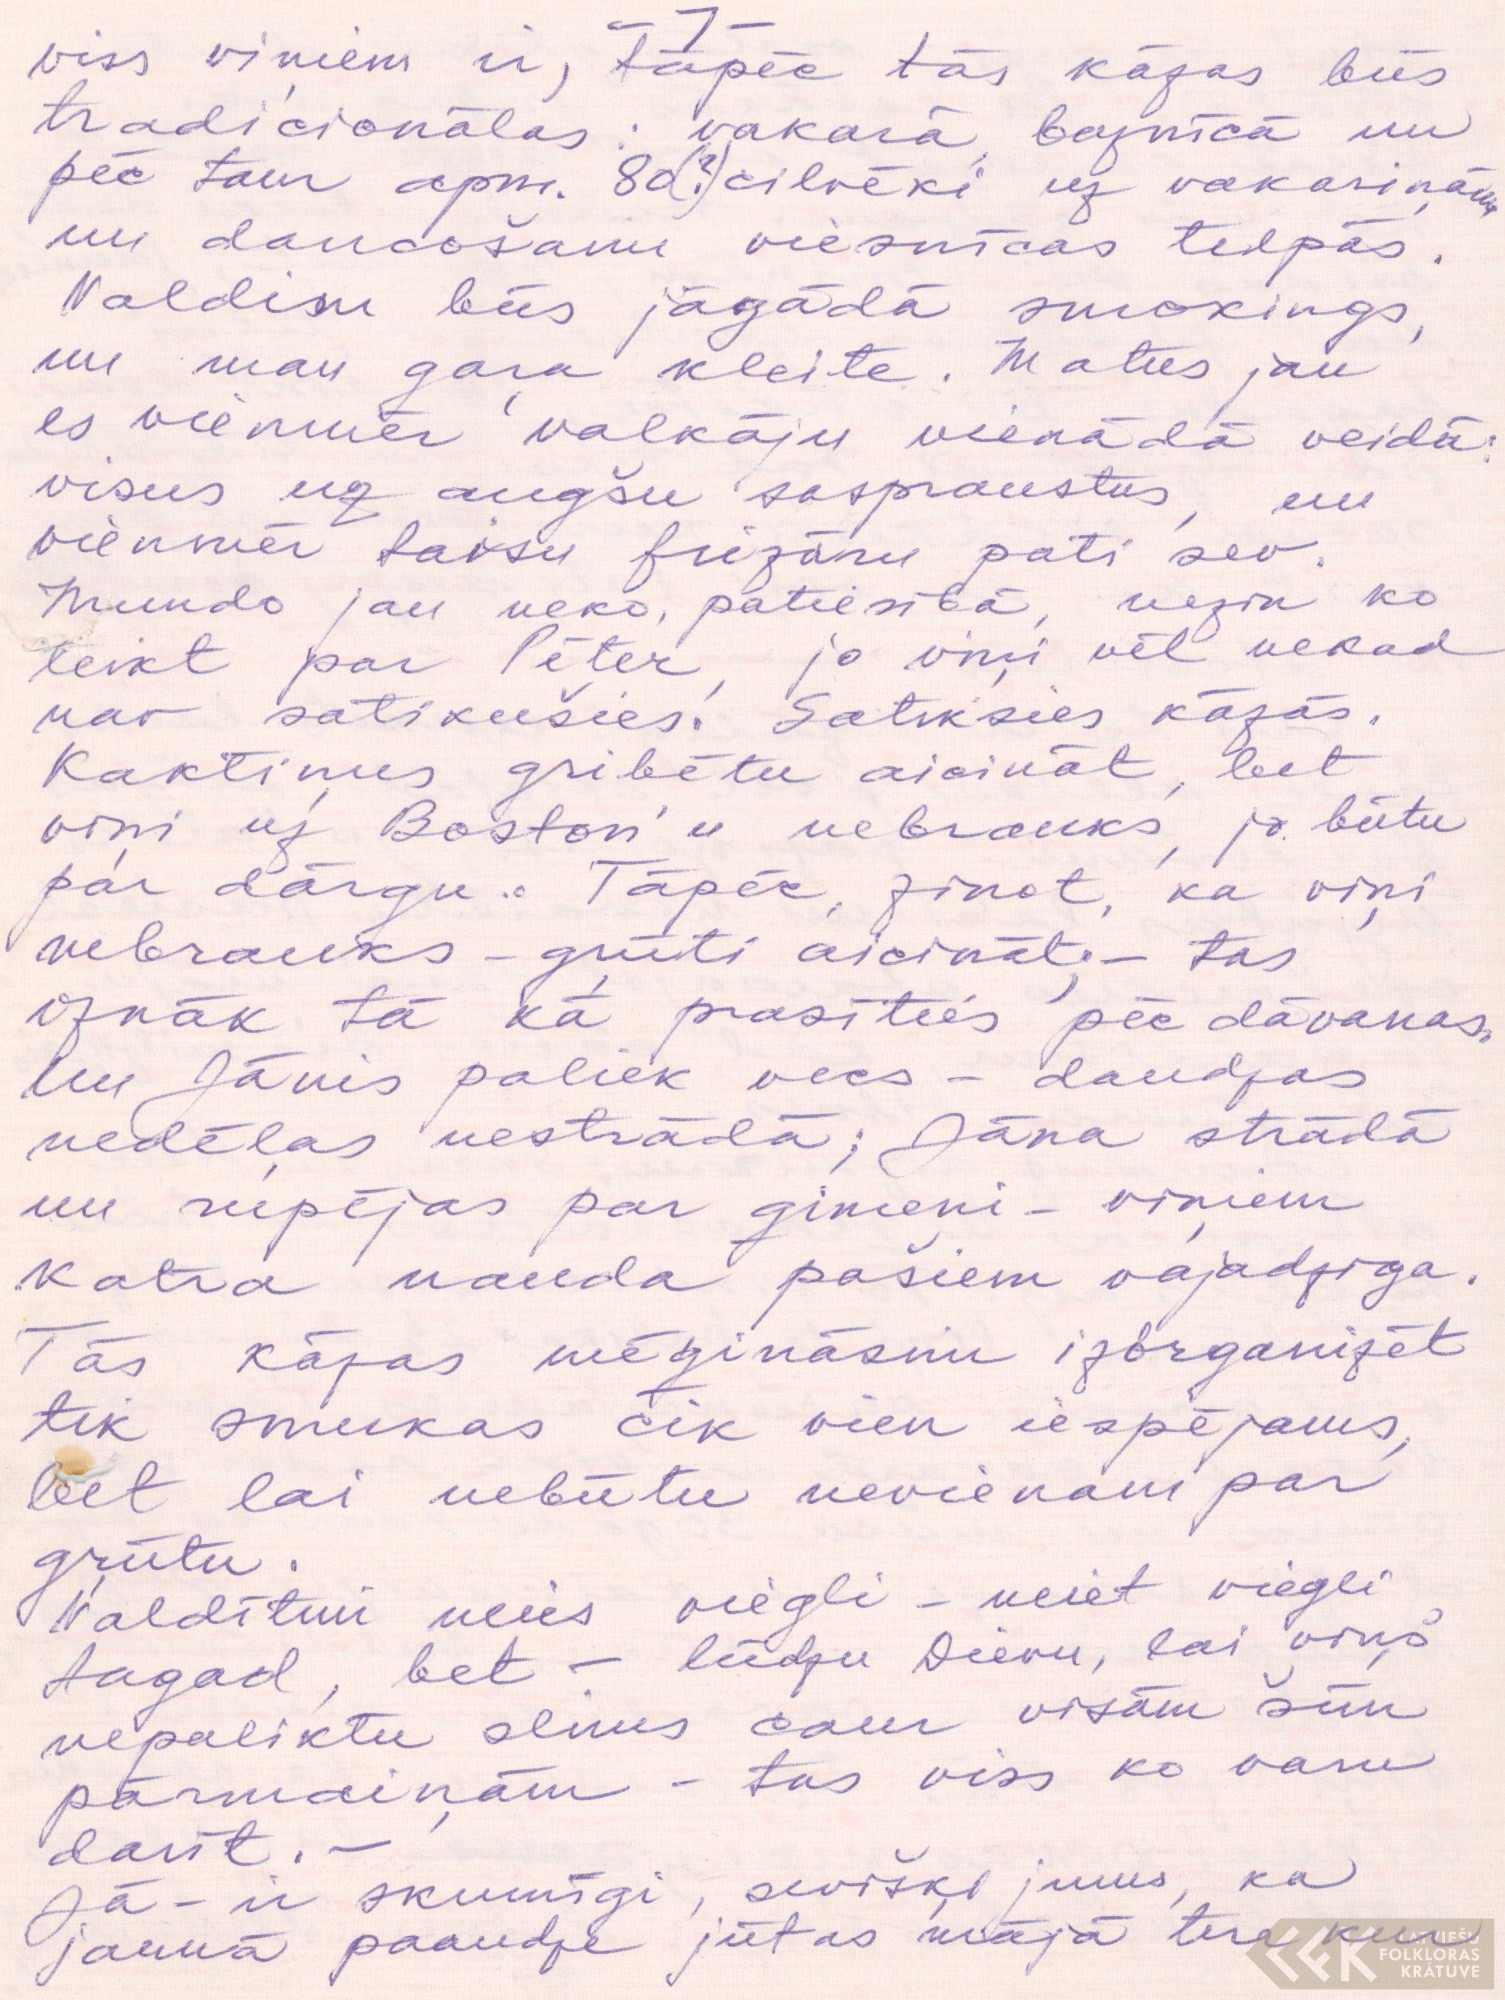 -7-
viss viņiem ir, tāpēc tās kāzas būs
tradicionālas: vakarā, baznīcā un
pēc tam apm. 80(?) cilvēki uz vakariņām
un dancošanu viesnīcas telpās.
Valdim būs jāgādā smokings,
un man gaŗa kleite. Matus jau
es vienmēr valkāju vienādā veidā:
visus uz augšu saspraustus, un
vienmēr taisu frizūru pati sev.
Mundo jau neko, patiesībā, nezin ko
teikt par Pēter, jo viņi vēl nekad
nav satikušies. Satiksies kāzās.
Kaktiņus gribētu aicināt, bet
viņi uz Boston'u nebrauks, jo būtu
pār dārgu.. Tāpēc, zinot, ka viņi
nebrauks - grūti aicināt; - tas
iznāk tā kā prasīties pēc dāvanas.
Un Jānis paliek vecs - daudzas
nedēļas nestrādā; Jāna strādā
un rūpējas par ģimeni - viņiem
katra nauda pašiem vajadzīga.
Tās kāzas mēģināsim izorganizēt
tik smukas cik vien iespējams,
bet lai nebūtu nevienam par
grūtu.
Valdītim neies viegli - neiet viegli
tagad, bet - lūdzu Dievu, lai viņš
nepaliktu slims caur visām šīm
pārmaiņām - tas viss ko varu
darīt. -
Jā - ir skumīgi, sevišķi jums, ka
jaunā paaudze jūtas mājā tur kur
LATVIEŠU
FOLKLORAS
KRĀTUVE